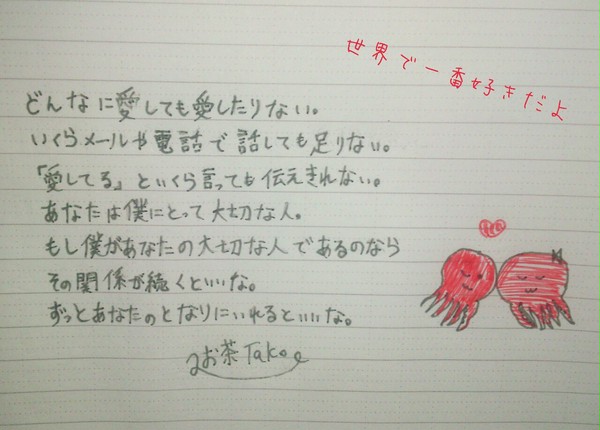 世界で一番好きだよ
どんなに愛しても愛したりない。
いくらメールや電話で話しても足りない。
「愛してる」といくら言っても伝えきれない。
あなたは僕にとって大切な人。
もし僕があなたの大切な人であるのなら
その関係が続くといいな。
ずっとあなたのとなりにいれるといいな。
お茶Tako